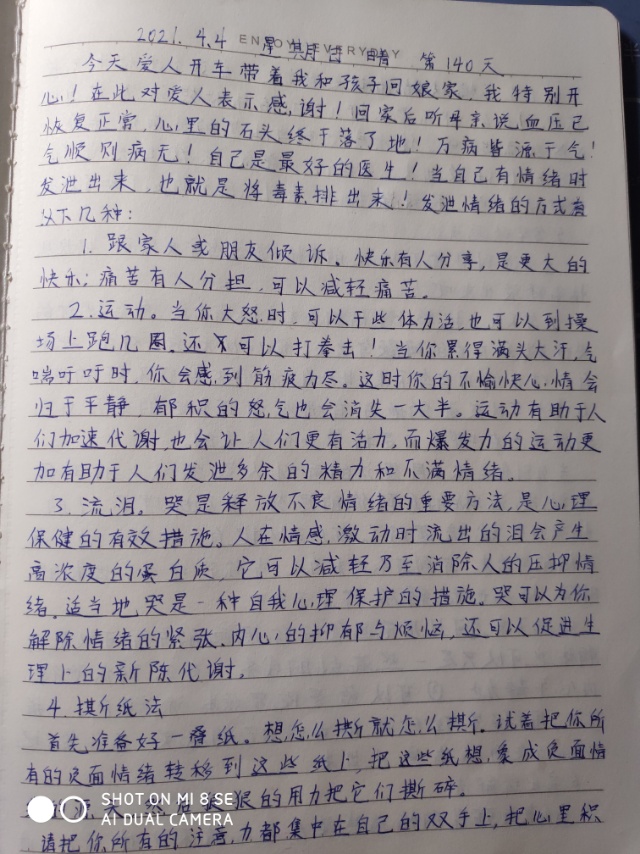 ENJOY EVERY DAY
2021.4.4 星期日 晴 第140天
今天爱人开车带着我和孩子回娘家,我特别开
心!在此对爱人表示感谢!回家后听母亲说血压已
恢复正常,心里的石头终于落了地!万病皆源于气!
气顺则病无!自己是最好的医生!当自己有情绪时
发泄出来,也就是将毒素排出来!发泄情绪的方式有
以下几种:
1.跟家人或朋友倾诉。快乐有人分享,是更大的
快乐;痛苦有人分担,可以减轻痛苦。
2.运动。当你大怒时,可以干些体力活,也可以到操
场上跑几圈,还可以打拳击!当你累得满头大汗,气
喘吁吁时,你会感到筋疲力尽。这时你的不愉快心情会
归于平静,郁积的怒气也会消失一大半。运动有助于人
们加速代谢,也会让人们更有活力,而爆发力的运动更
加有助于人们发泄多余的精力和不满情绪。
3.流泪。哭是释放不良情绪的重要方法,是心理
保健的有效措施。人在情感激动时流出的泪会产生
高浓度的蛋白质,它可以减轻乃至消除人的压抑情
绪。适当地哭是一种自我心理保护的措施。哭可以为你
解除情绪的紧张、内心的抑郁与烦恼,还可以促进生
理上的新陈代谢。
4.撕纸法
首先准备好一叠纸。想怎么撕就怎么撕。试着把你所
有的负面情绪转移到这些纸上,把这些纸想象成负面情
狠的用力把它们撕碎。
请把你所有的注意力都集中在自己的双手上,把心里积
SHOT ON MI 8 SE
AI DUAL CAMERA